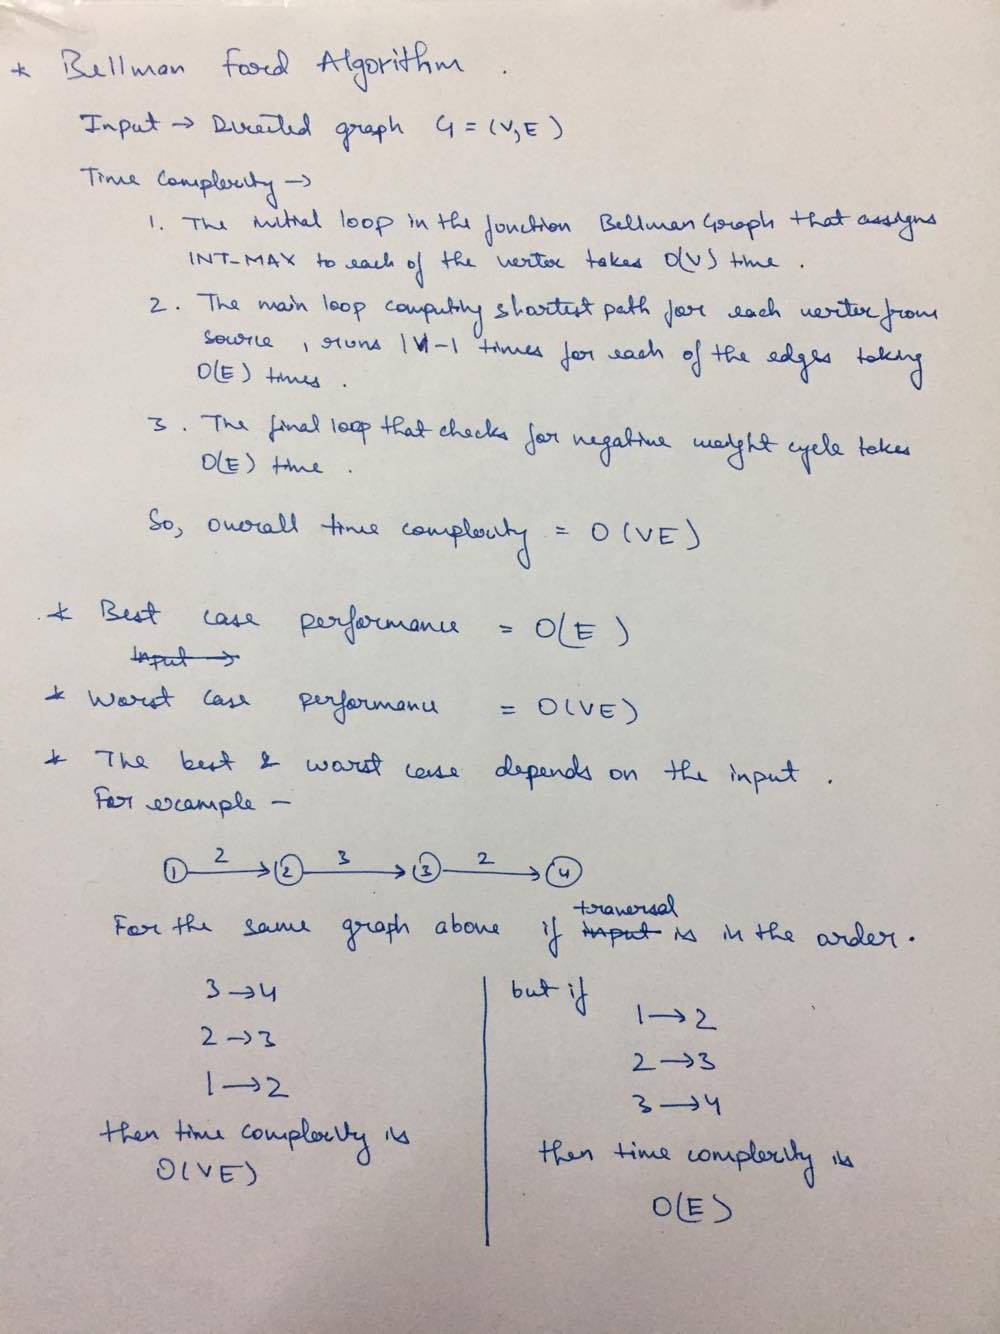 * Bellman Ford Algorithm.
Input → Directed graph G = (V,E)
Time Complexity →
1. The initial loop in the function BellmanGraph that assigns
INT-MAX to each of the vertex takes O(V) time.
2. The main loop computing shortest path for each vertex from
source, runs |V|-1 times for each of the edges taking
O(E) times.
3. The final loop that checks for negative weight cycle takes
O(E) time.
So, overall time complexity = O(VE)
* Best case performance = O(E)
Input →
* Worst case performance = O(VE)
* The best & worst case depends on the input.
For example -
1 2 → 2 3 → 3 2 → 4
traversal
For the same graph above if input is in the order.
3 → 4 but if
1 → 2
2 → 3
2 → 3
1 → 2
3 → 4
then time complexity is
then time complexity is
O(VE)
O(E)